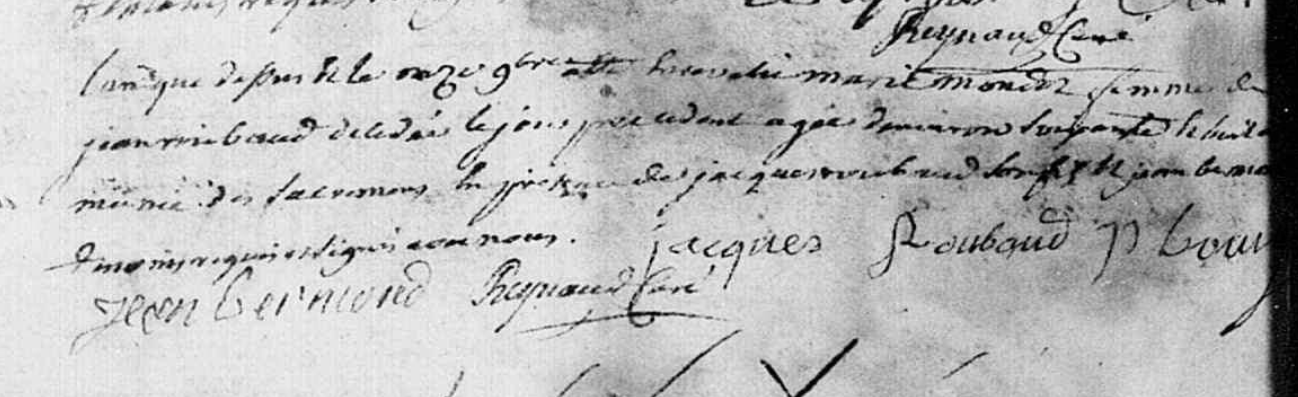 Reynaud Curé
l'an que dessus et le onze 9bre a esté ensevelie marie femme de
jean roubaud décédée le jour précédent agée d'environ soixante et huit
munie des sacremens en présence de jacques roubaud son fils et jean bermo
témoins requis et signés avec nous. Jacques Roubaud P
Jean bermond Reynaud Curé